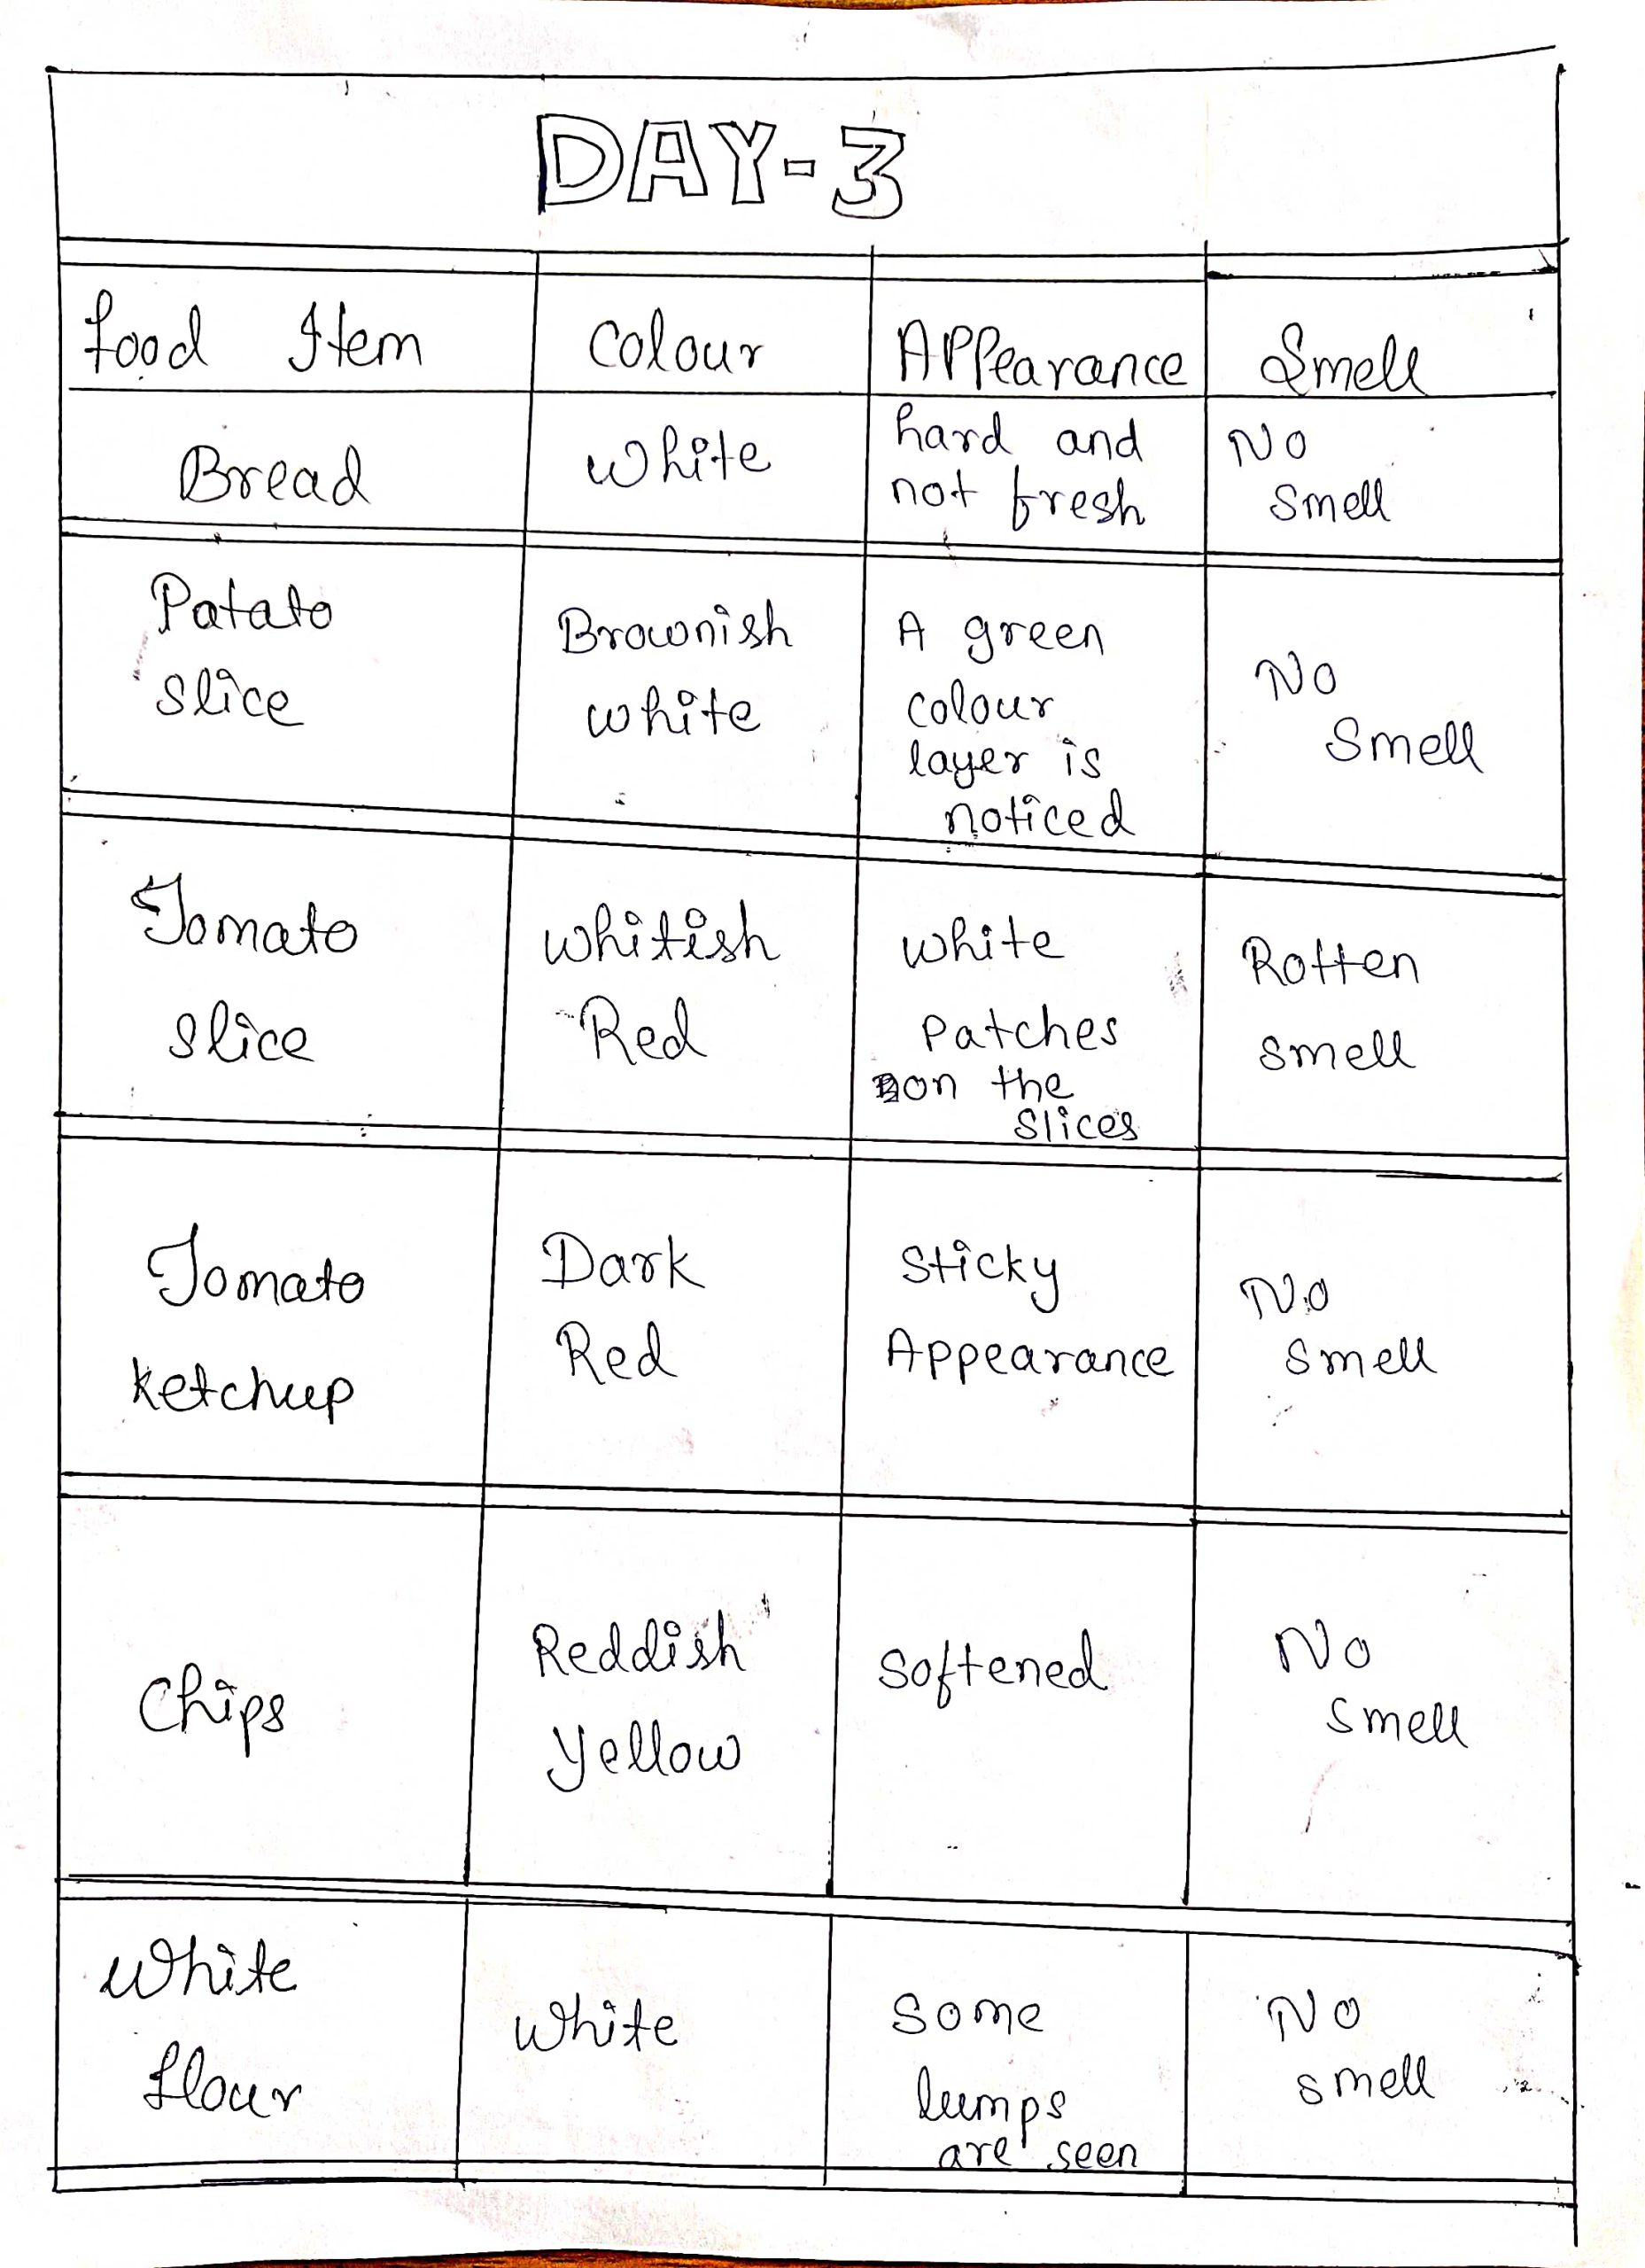 DAY-3
food Item Colour Appearance Smell
Bread White hard and not fresh No Smell
Patato Slice Brownish white A green colour layer is noticed No Smell
Tomato Slice Whitish Red White Patches on the Slices Rotten Smell
Tomato ketchup Dark Red Sticky Appearance No Smell
Chips Reddish Yellow Softened No Smell
White flour White Some lumps are seen No smell